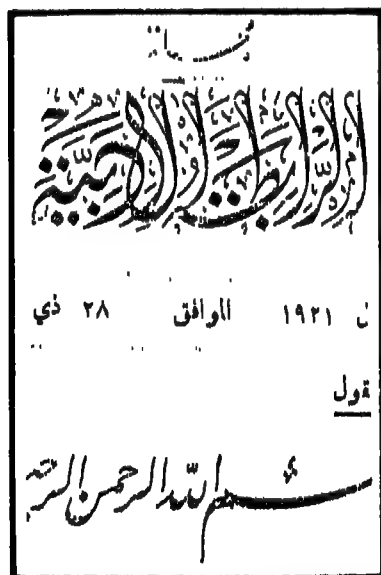 الرابطة الأدبية
ن ١٩٢١ الموافق ٢٨ ذي
قول
بسم الله الرحمن